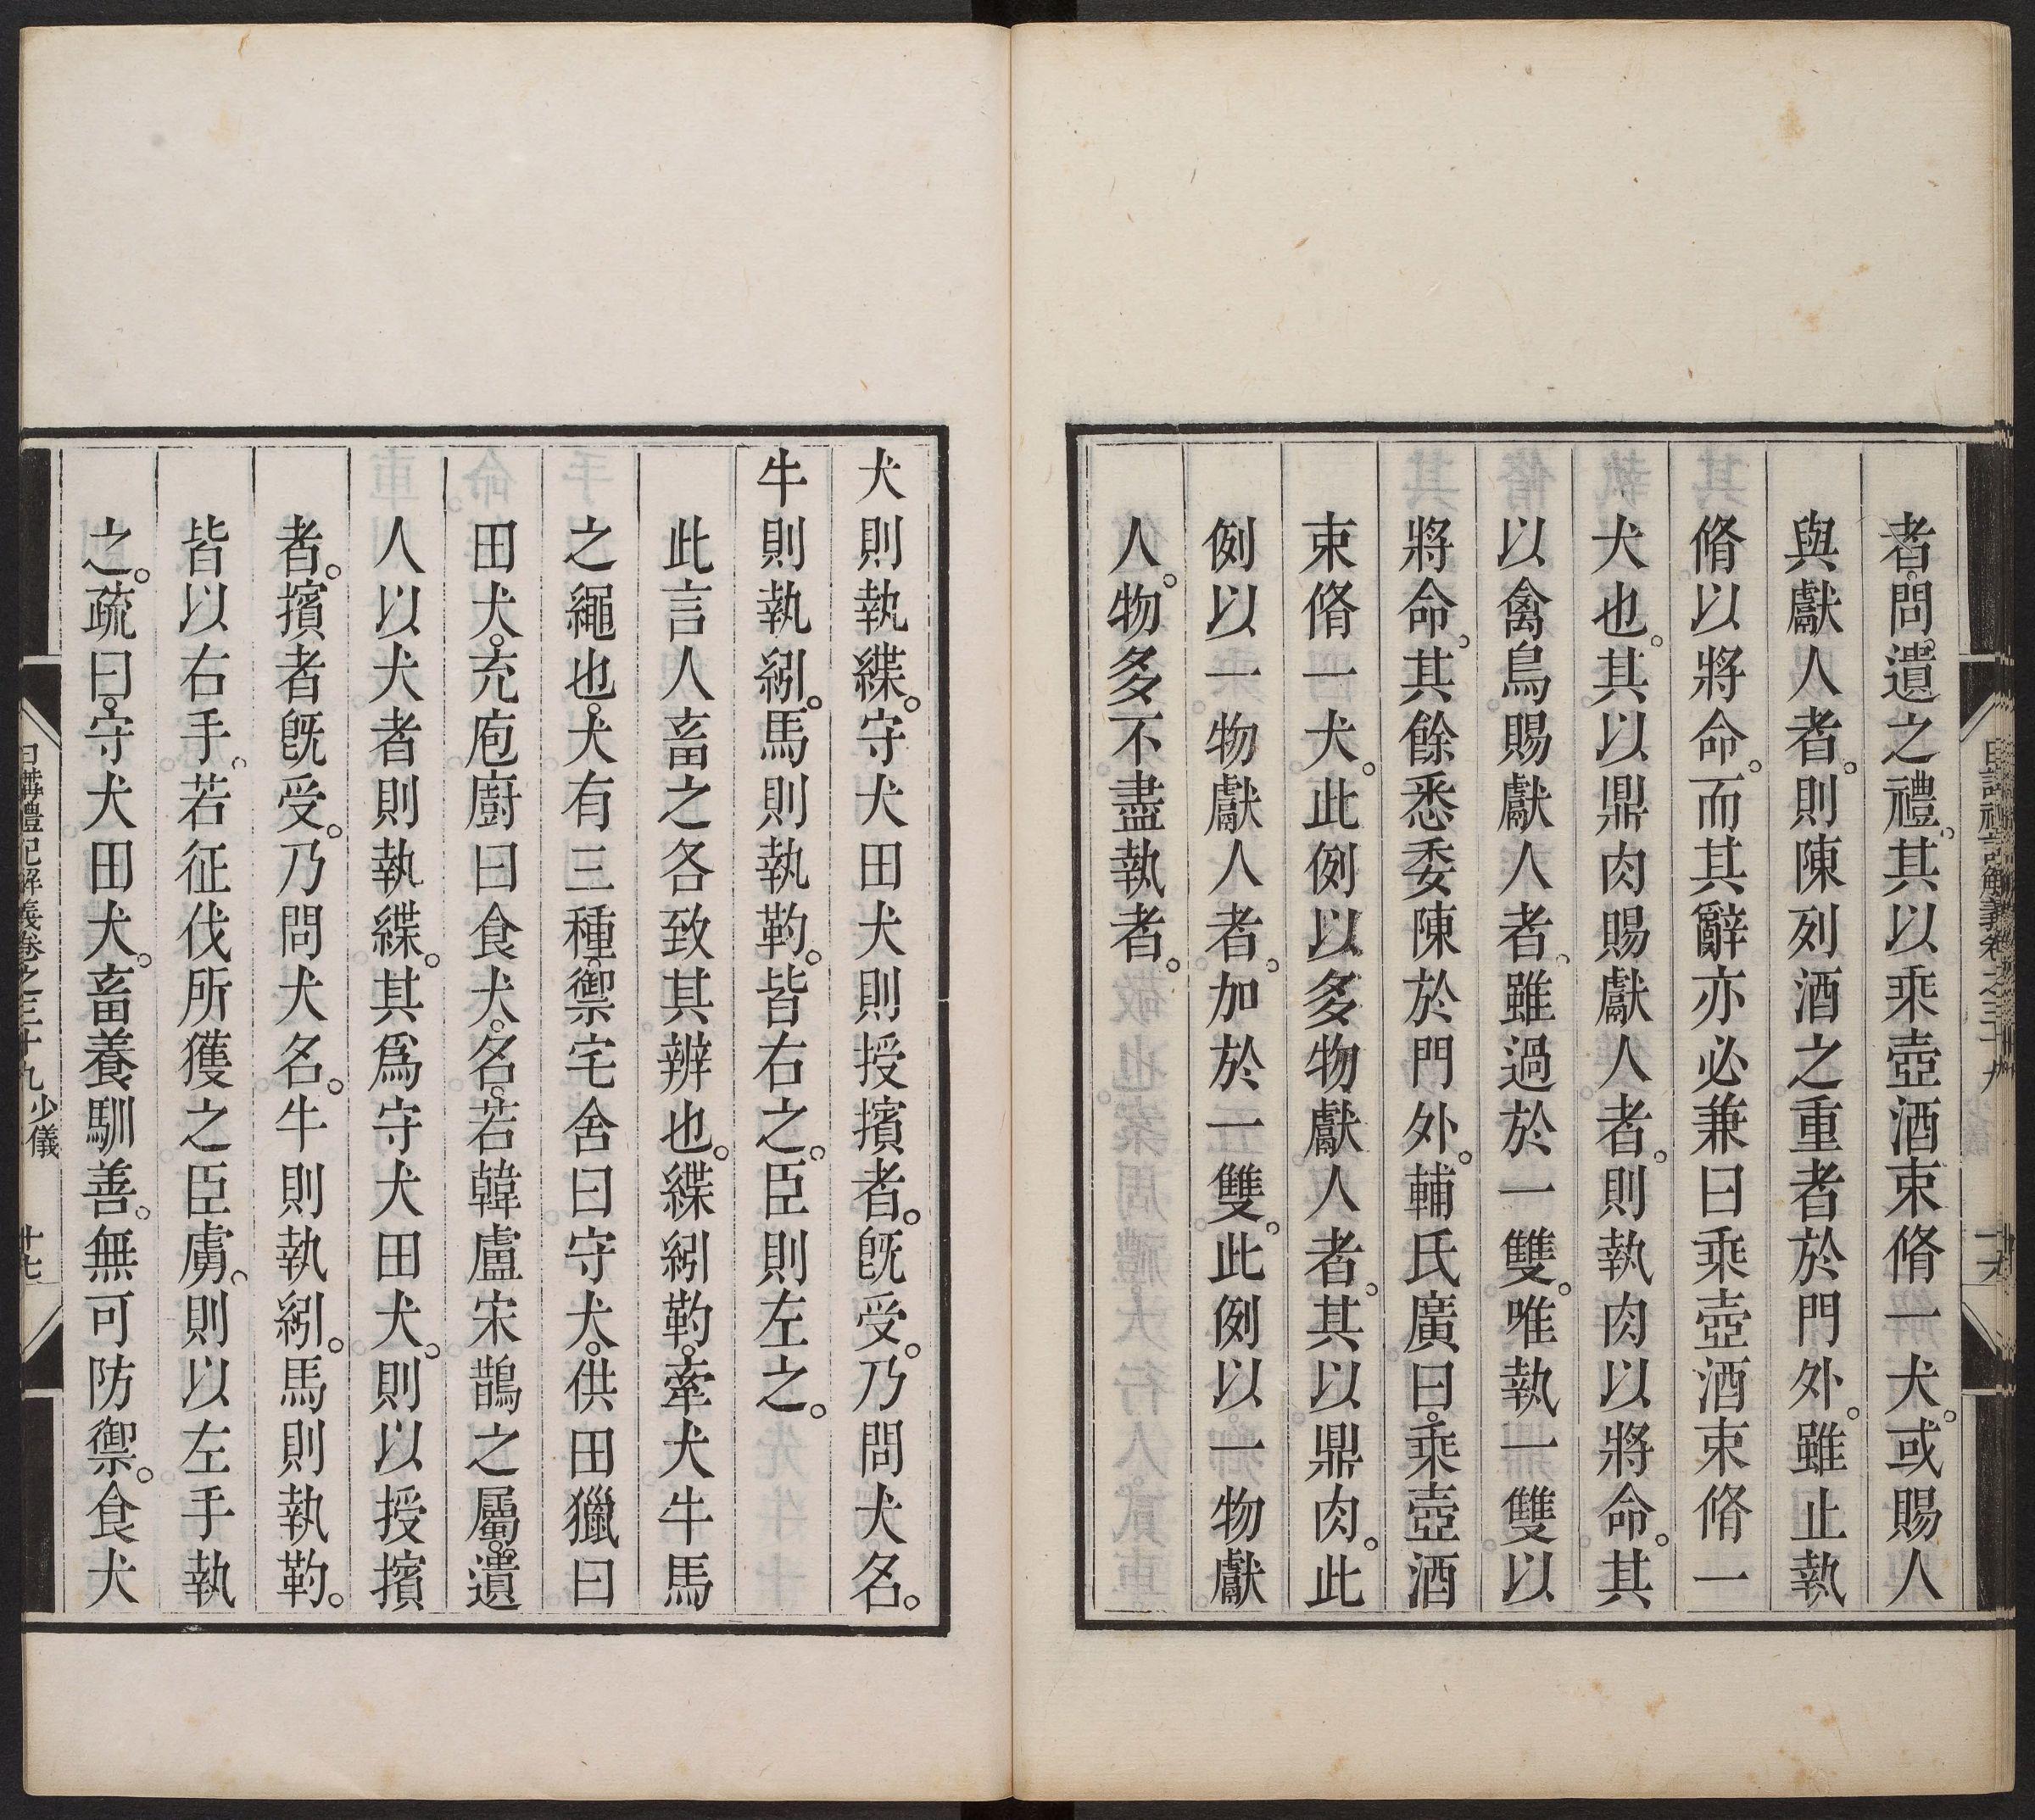 者。問。遺之禮。其以乘壺酒束脩一犬。或賜人
與獻人者。則陳列酒之重者於門外。雖止執
脩以將命。而其辭亦必兼曰乘壺酒束脩一
犬也。其以鼎肉賜獻人者。則執肉以將命。其
以禽鳥賜獻人者。雖過於一雙。唯執一雙以
將命。其餘悉委陳於門外。輔氏廣曰。乘壺酒
束脩一犬。此例以多物獻人者。其以鼎肉。此
例以一物獻人者。加於一雙。此例以一物獻
人。物多不盡執者。
犬則執緤。守犬田犬則授擯者。旣受。乃問犬名。
牛則執紖。馬則執靮。皆右之。臣則左之。
此言人畜之各致其辨也。緤紖靮。牽犬牛馬
之繩也。犬有三種。禦宅舍曰守犬。供田獵曰
田犬。充庖廚曰食犬。名。若韓盧宋鵲之屬。遺
人以犬者則執緤。其爲守犬田犬。則以授擯
者。擯者旣受。乃問犬名。牛則執紖。馬則執靮。
皆以右手。若征伐所獲之臣虜。則以左手執
之。疏曰。守犬田犬。畜養馴善。無可防禦。食犬
日講禮記解義卷之三十九 少儀 廿七